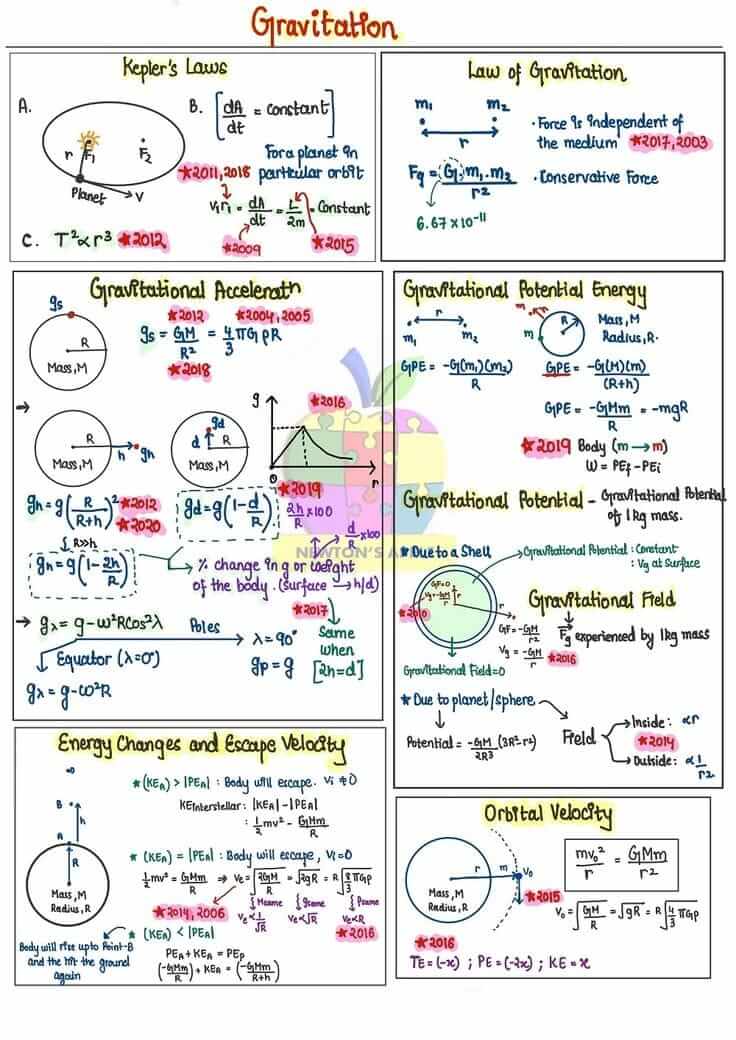 Gravitation
Kepler's Laws
A.
r
F₁
F₂
Planet
V
B. [dA/dt = Constant]
For a planet in
★2011, 2018 particular orbit
V₁r₁ = dA/dt = L/2m = Constant
★2009
★2015
C. T²∝r³ ★2012
Law of Gravitation
m₁ m₂
r
Fg = G m₁.m₂/r²
6.67×10⁻¹¹
• Force is independent of
the medium ★2017, 2003
• Conservative Force
Gravitational Acceleratn
gs
R
Mass, M
★2012 ★2004, 2005
gs = GM/R² = 4/3 πGρR
★2018
→
R
h
gh
Mass, M
gd
d
R
Mass, M
g
★2016
0
r
gh = g(R/R+h)² ★2012
★2020
↓ R>>h
gh = g(1-2h/R)
gd = g(1-d/R)
★2019
2h/R ×100
d/R ×100
% change in g or weight
of the body. (surface → h/d)
★2017
Same
when
[2h=d]
→ gλ = g-ω²RCos²λ
Poles
λ = 90°
gp = g
Equator (λ=0°)
gλ = g-ω²R
Gravitational Potential Energy
r
m₁ m₂
GPE = -G(m₁)(m₂)/R
m
R
m
Mass, M
Radius, R.
GPE = -G(M)(m)/(R+h)
GPE = -GMm/R = -mgR
★2019 Body (m → m)
W = PEf - PEi
Gravitational Potential - Gravitational Potential
of 1kg mass.
★ Due to a Shell
Gravitational Potential : Constant
: Vg at Surface
GF=0
Vg=-GM/r
r
★2010
r
GF = -GM/r²
Vg = -GM/r ★2016
Gravitational Field = 0
Gravitational Field
Fg experienced by 1kg mass
★ Due to planet/sphere
Potential = -GM/2R³ (3R²-r²)
Field
Inside: ∝r
★2014
Outside: ∝1/r²
Energy Changes and Escape Velocity
∞
B
h
A
R
Mass, M
Radius, R
★ (KEA) > |PEA| : Body will escape. Vi ≠ 0
KEInterstellar: |KEA| - |PEA|
: 1/2 mv² - GMm/R
★ (KEA) = |PEA| : Body will escape, Vi=0
1/2 mv² = GMm/R ⇒ Ve = √2GM/R = √2gR = R√8/3 πGρ
★2014, 2006
Msame
Ve∝1/√R
gsame
Ve∝√R
ρsame
Ve∝R
★2016
★ (KEA) < |PEA|
PEA + KEA = PEB
(-GMm/R) + KEA = (-GMm/R+h)
Body will rise upto Point-B
and the hit the ground
again
Orbital Velocity
r
m
V₀
Mass, M
Radius, R
mv₀²/r = GMm/r²
★2015
V₀ = √GM/R = √gR = R√4/3 πGρ
★2016
TE = (-x) ; PE = (-2x) ; KE = x